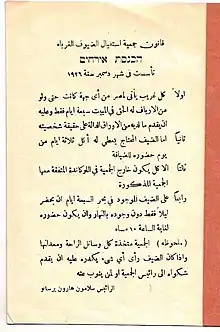 قانون جمعية استقبال الضيوف الغرباء
הכנסת אורחים
تأسست في شهر دسمبر سنة ١٩٢٦
اولاً كل غريب يأتى لمصر من أى جهة كانت حتى ولو
من الارياف له الحق في المبيت سبعة ايام فقط وعليه
ان يقدم ما لديه من الاوراق الدالة على حقيقة شخصيته
ثانياً اما الضيف المحتاج يعطى له أكل ثلاثة ايام من
يوم حضوره للضيافة
ثالثا الاكل يكون خارج الجمعية في اللوكاندة المتفقة معها
الجمعية المذكورة
رابعاً على الضيف الموجود في بحر السبعة ايام ان يحضر
ليلاً فقط دون وجوده بالنهار وان يكون حضوره
لغاية الساعة ١٠ مساء
(ملحوظه) الجمعية متخذة كل وسائل الراحة ومعداتها
واذا كان الضيف رأى أى شىء يكدره عليه ان يقدم
شكواه الى رئيس الجمعية او لمن ينوب عنه
الرئيس سلامون هارون برسانو